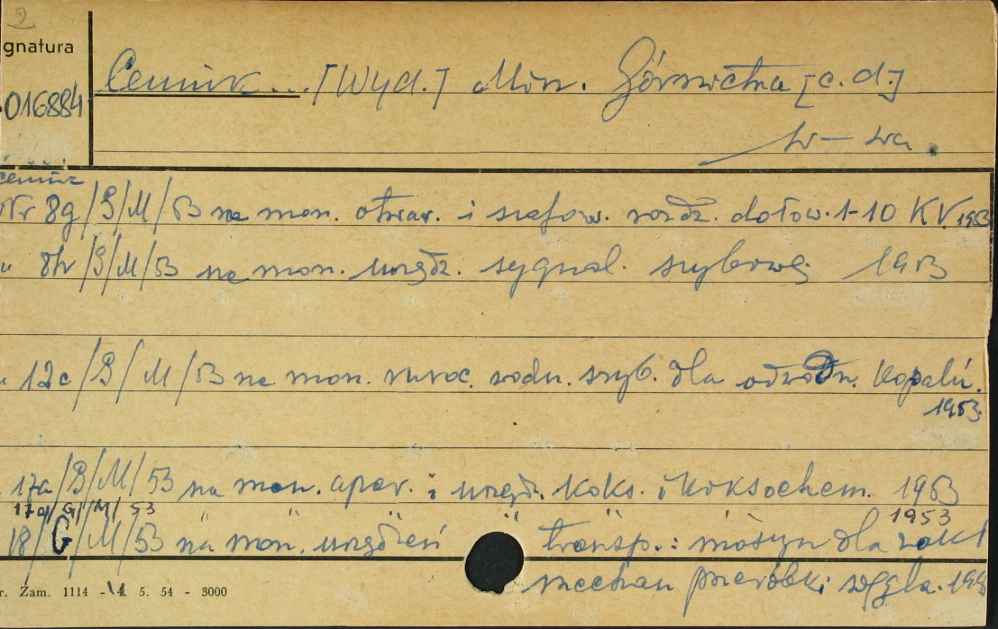 2
gnatura
Cennik... [Wyd.] Min. Górnictwa [c.d.]
016884
W-wa.
Cennik
Nr 8g/G/M/53 na mon. otwar. i szafow. rozdz. dołow. 1-10 KV. 1953
" 8h/G/M/53 na mon. urządz. sygnal. szybowej 1953
" 12c/G/M/53 na mon. ruroc. wodn. szyb. dla odwodn. Kopalń.
1953
17a/G/M/53 na mon. apar. i urządz. koks. i koksochem. 1953
17a/G/M/53 " " " " 1953
18/G/M/53 na mon. urządzeń transp. i maszyn dla zakł
mechan przeróbki węgla. 195
r. Zam. 1114 - 5. 54 - 3000